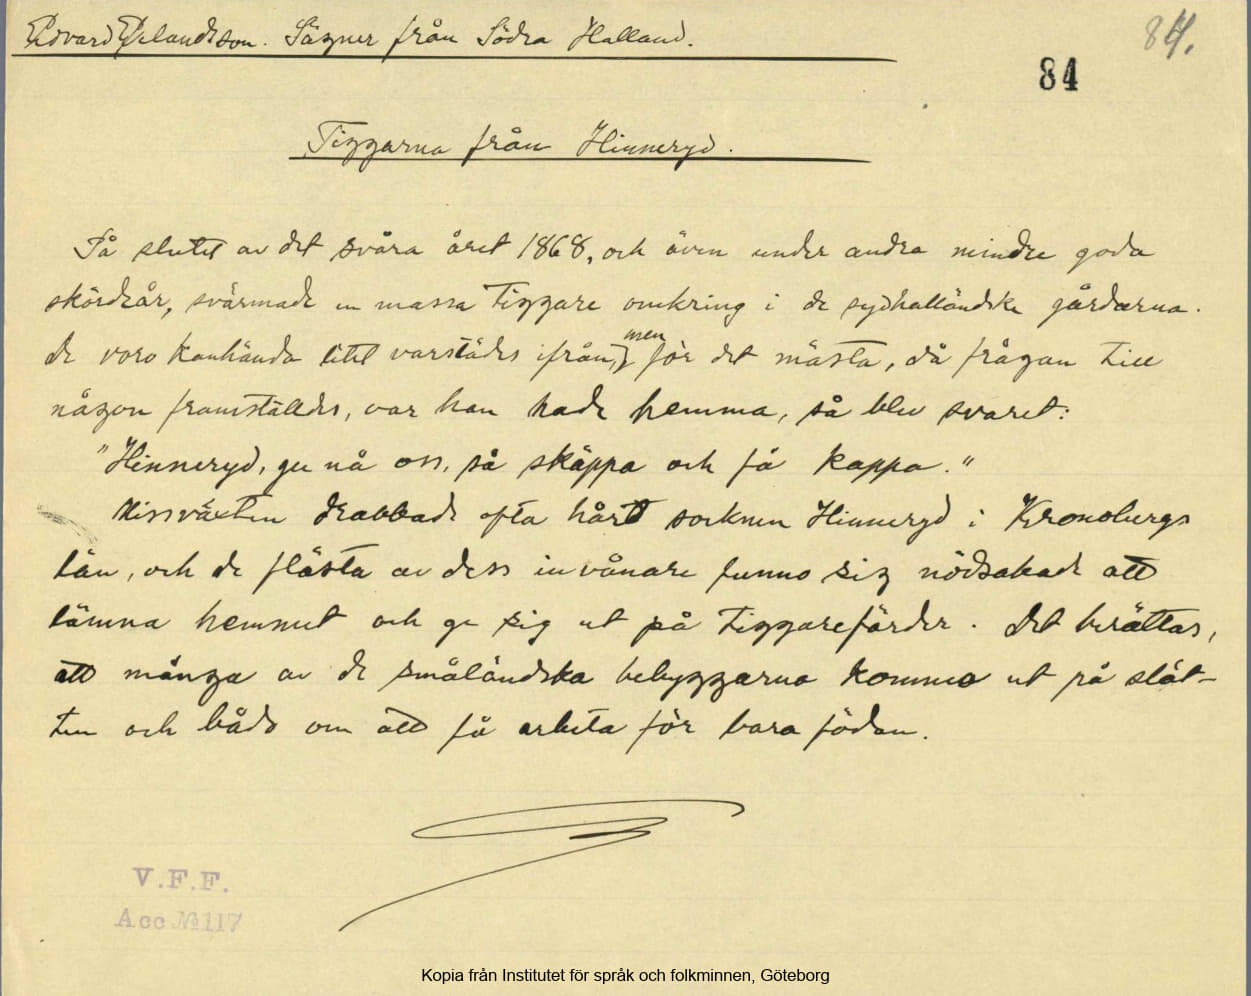 Edvard Erlandsson. Sägner från Södra Halland.
84.
84
Tiggarna från Hinneryd.
På slutet av det svåra året 1868, och även under andra mindre goda
skördeår, svärmade en massa tiggare omkring i de sydhalländska gårdarna.
de voro kanhända litet varstädes ifrån, men för det mästa, då frågan till
någon framställdes, var han hade hemma, så blev svaret:
"Hinneryd, gu nå oss, så skäppa och få kappa."
Missväxten drabbade ofta hårt socknen Hinneryd i Kronobergs
län, och de flästa av dess invånare funno sig nödsakade att
lämna hemmet och ge sig ut på tiggarefärder. Det berättas,
att många av de småländska bebyggarna kommo ut på slät-
ten och bådo om att få arbeta för bara födan.
V.F.F.
Acc No 117
Kopia från Institutet för språk och folkminnen, Göteborg